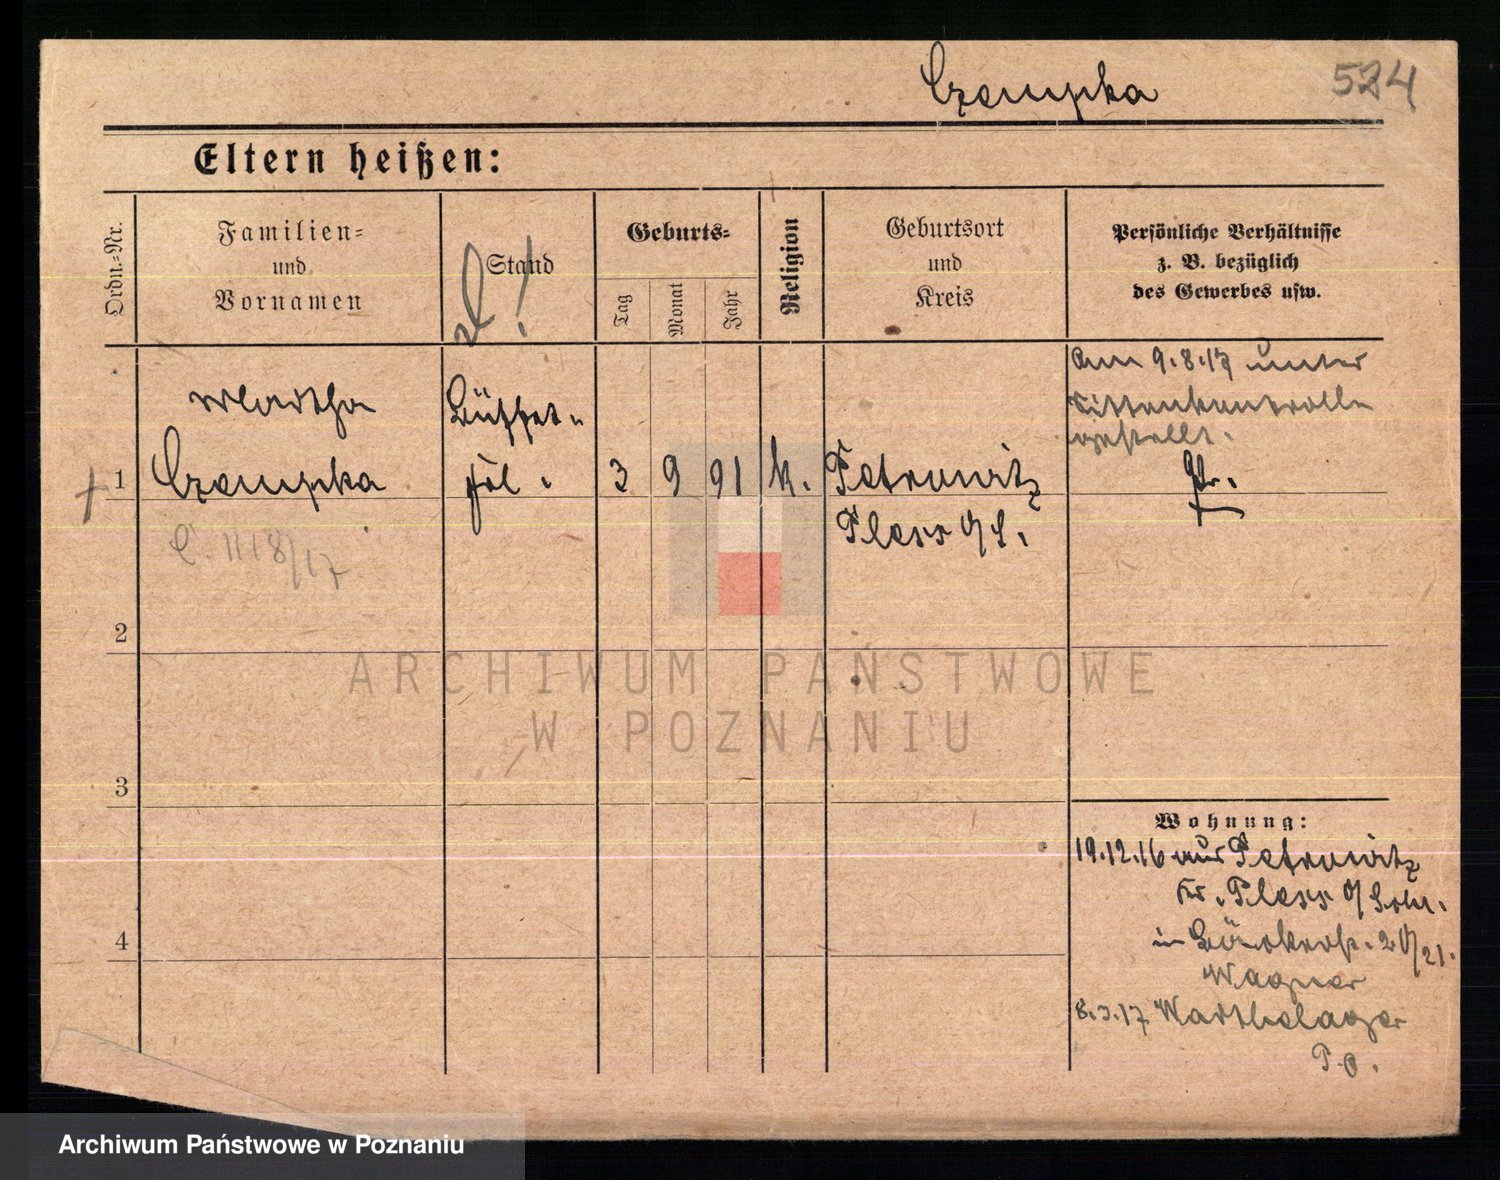 Czempka 524
Eltern heißen:
Ordn.=Nr.
Familien=
und
Vornamen
Stand
Geburts=
Tag
Monat
Jahr
Religion
Geburtsort
und
Kreis
Persönliche Verhältnisse
z. B. bezüglich
des Gewerbes usw.
Martha
Czempka
Büffet-
frl.
1
3 9 91 k.
Petrowitz
Pless O/S.
Am 9.8.17 unter
Sittenkontrolle
gestellt.
C. 1118/17
2
3
4
ARCHIWUM PAŃSTWOWE
W POZNANIU
Wohnung:
19.12.16 aus Petrowitz
Kr. Pless O/Schl.
in 20/21.
Wagner
8.3.17 Warthelager
Archiwum Państwowe w Poznaniu